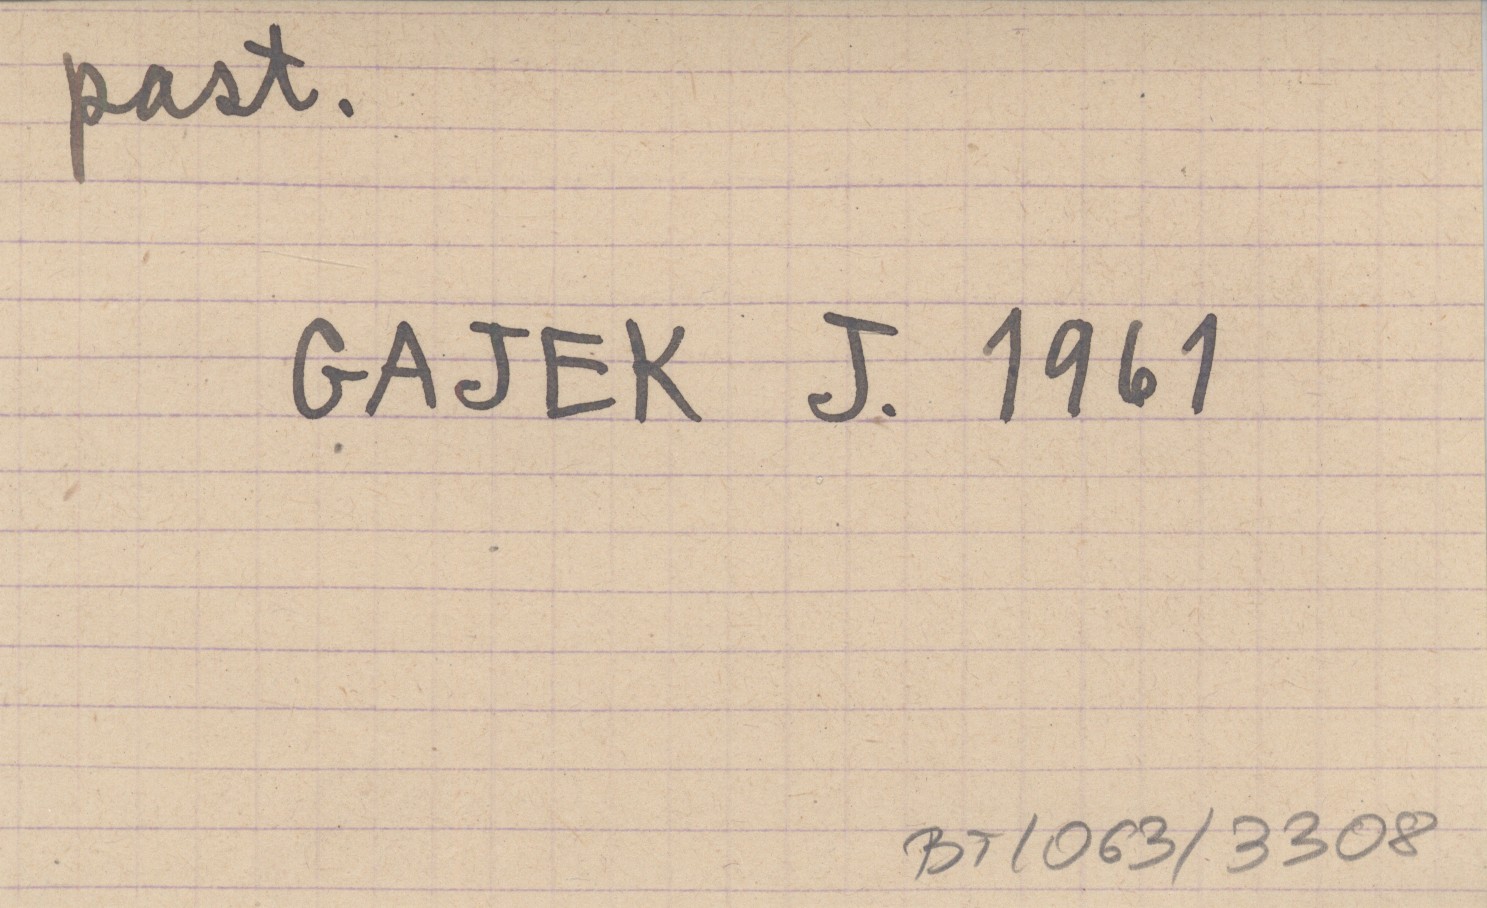 past.
GAJEK J. 1961
BT/063/3308